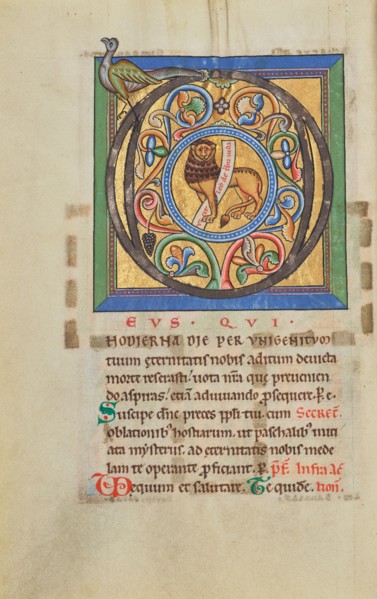 leo de tribu iuda
D
EVS · QVI ·
HODIERNA DIE PER VNIGENITVO
tuum ęternitatis nobis aditum deuicta
morte reserasti, uota nr̄a que preuenien
do aspiras, etiā adiuuando prosequere. P. e.
Suscipe dn̄e preces ppl̄i tui, cum SECRET̄.
oblationib; hostiarum, ut paschalib; initi
ata mysteriis, ad ęternitatis nobis mede
lam te operante proficiant. P. PF̄. Infra ac̄
equum et salutare. Te quidē.